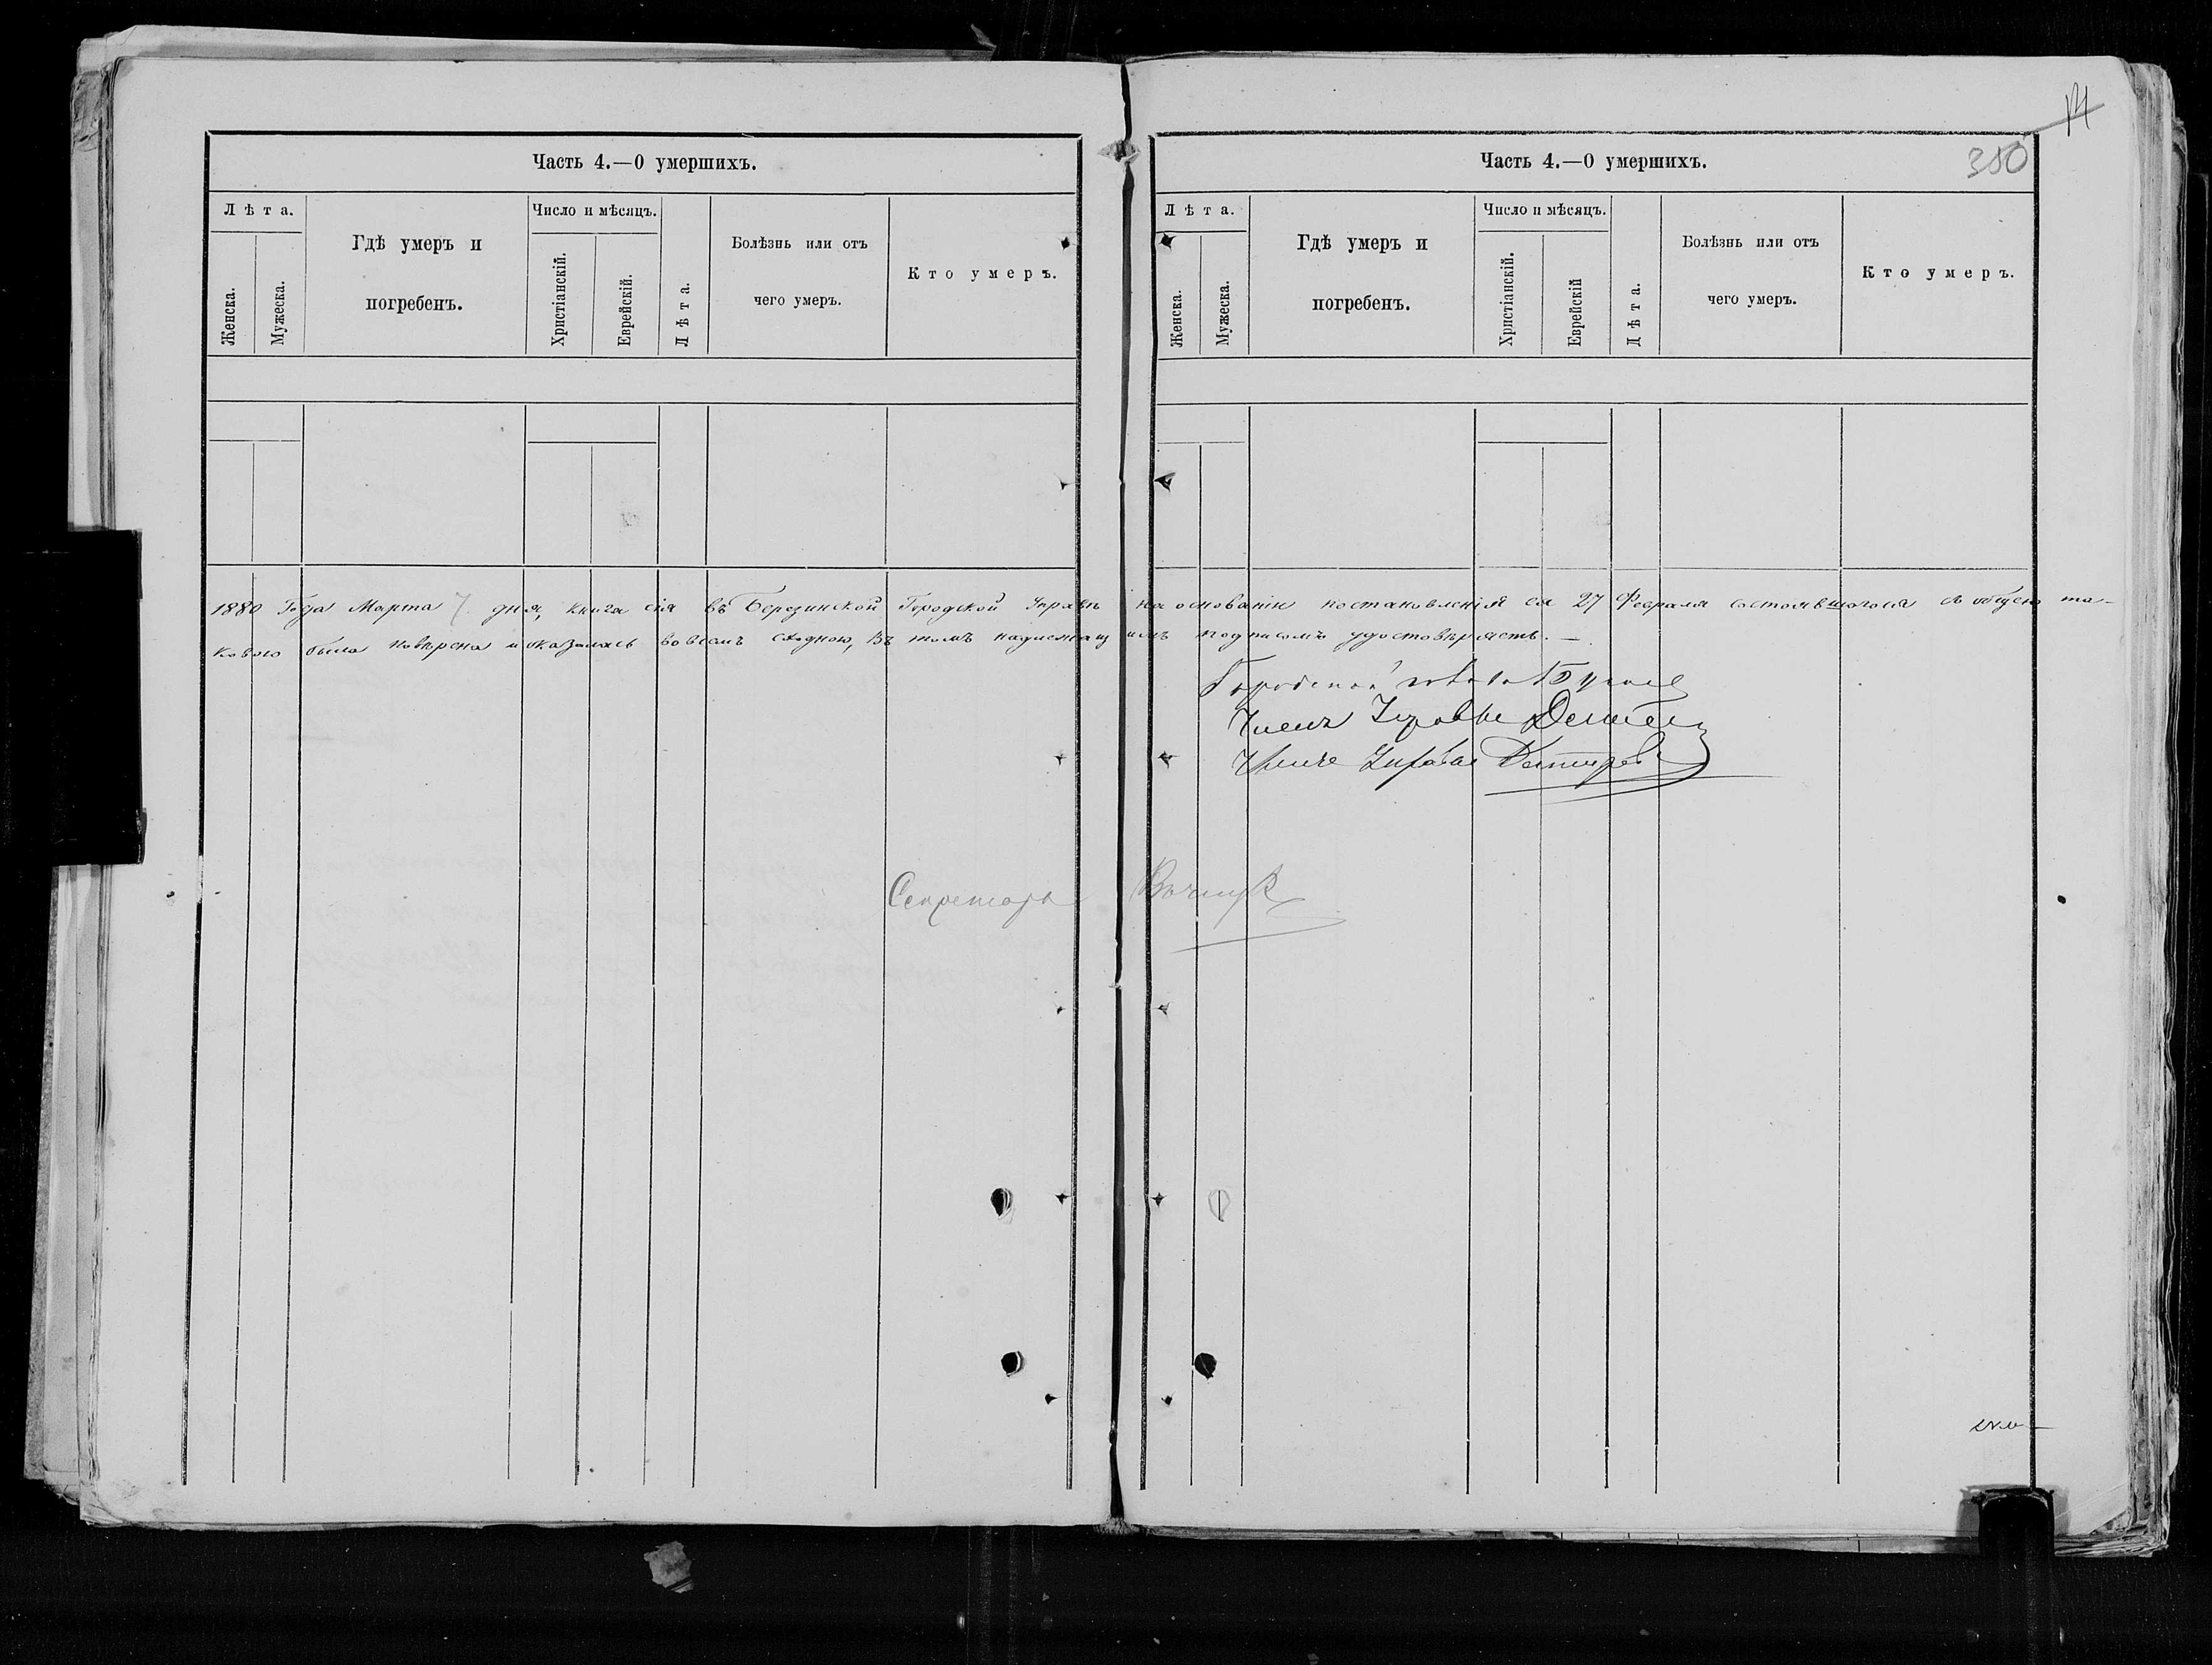 Часть 4.—О умершихъ.
Лѣта.
Женска.
Мужеска.
Гдѣ умеръ и
погребенъ.
Число и мѣсяцъ.
Христіанскій.
Еврейскій.
Лѣта.
Болѣзнь или отъ
чего умеръ.
Кто умеръ.
14
Часть 4.—О умершихъ.
350
Лѣта.
Женска.
Мужеска.
Гдѣ умеръ и
погребенъ.
Число и мѣсяцъ.
Христіанскій.
Еврейскій
Лѣта.
Болѣзнь или отъ
чего умеръ.
Кто умеръ.
1880 Года Марта 7 дня, книга сія въ Городской Управѣ на основаніи постановленія ея 27 Февраля состоявшагося
была повѣрена и оказалась вовсемъ сходною, Въ томъ надлежащимъ подписомъ удостовѣряетъ.—
Городской
Членъ Управы
Членъ Управы
Секретарь